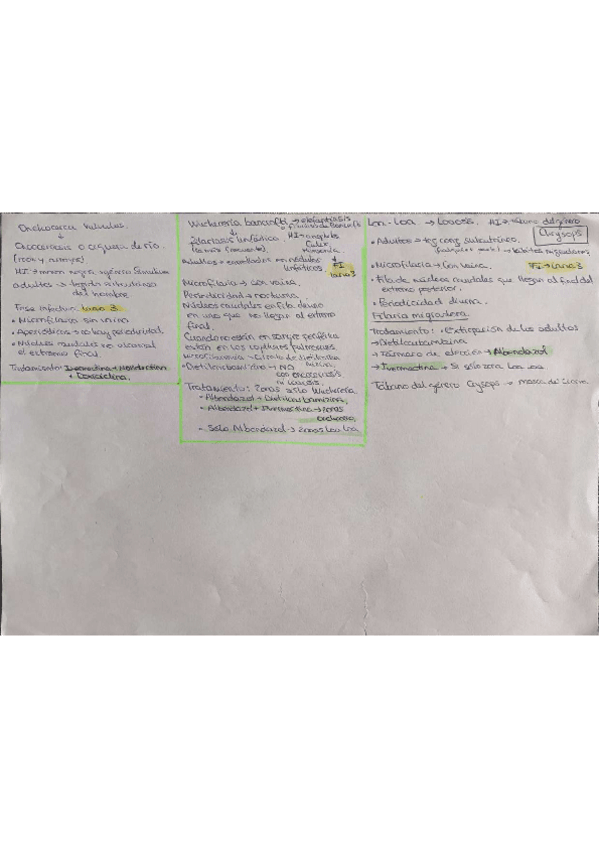 Onchocerca volvulus
↓
Oncocercosis o ceguera de río.
HI → mosca negra género Simulium
adultos → tejido subcutáneo
del hombre
Fase infectiva: Larva 3
• Microfilarias sin vaina
• Aperiódicas → no hay periodicidad.
• Núcleos caudales no alcanzan
el extremo final
Tratamiento: Ivermectina + Moxidectina
+ Doxiciclina.
Wuchereria bancrofti → elefantiasis
o filariosis de Bancroft
↓
filariasis linfática HI → 
(la más frecuente) Culex
Adultos → enrollados en nódulos
linfáticos FI
larva 3
Microfilaria → con vaina.
Periodicidad → nocturna.
Núcleos caudales en fila de uno
en uno que no llegan al extremo
final.
Cuando no están en sangre periférica
están en los capilares pulmonares.
• Dietilcarbamicina → NO
con oncocercosis
ni loaosis.
Tratamiento: Zonas sólo Wuchereria
• Albendazol + Dietilcarbamicina.
• Albendazol + Ivermectina → zonas
• Sólo Albendazol → zonas Loa loa
Loa-Loa → Loaosis. HI → tábano del género
Chrysops
• Adultos → tej conj subcutáneo. → hábitos migradores.
• Microfilaria → Con vaina. FI → Larva 3
• Fila de núcleos caudales que llegan al final del
extremo posterior.
• Periodicidad diurna.
Filaria migradora
Tratamiento: • Extirpación de los adultos
→ Dietilcarbamicina
→ Fármaco de elección → Albendazol
→ Ivermectina → Si sólo zona Loa loa
Tábano del género Crysops →